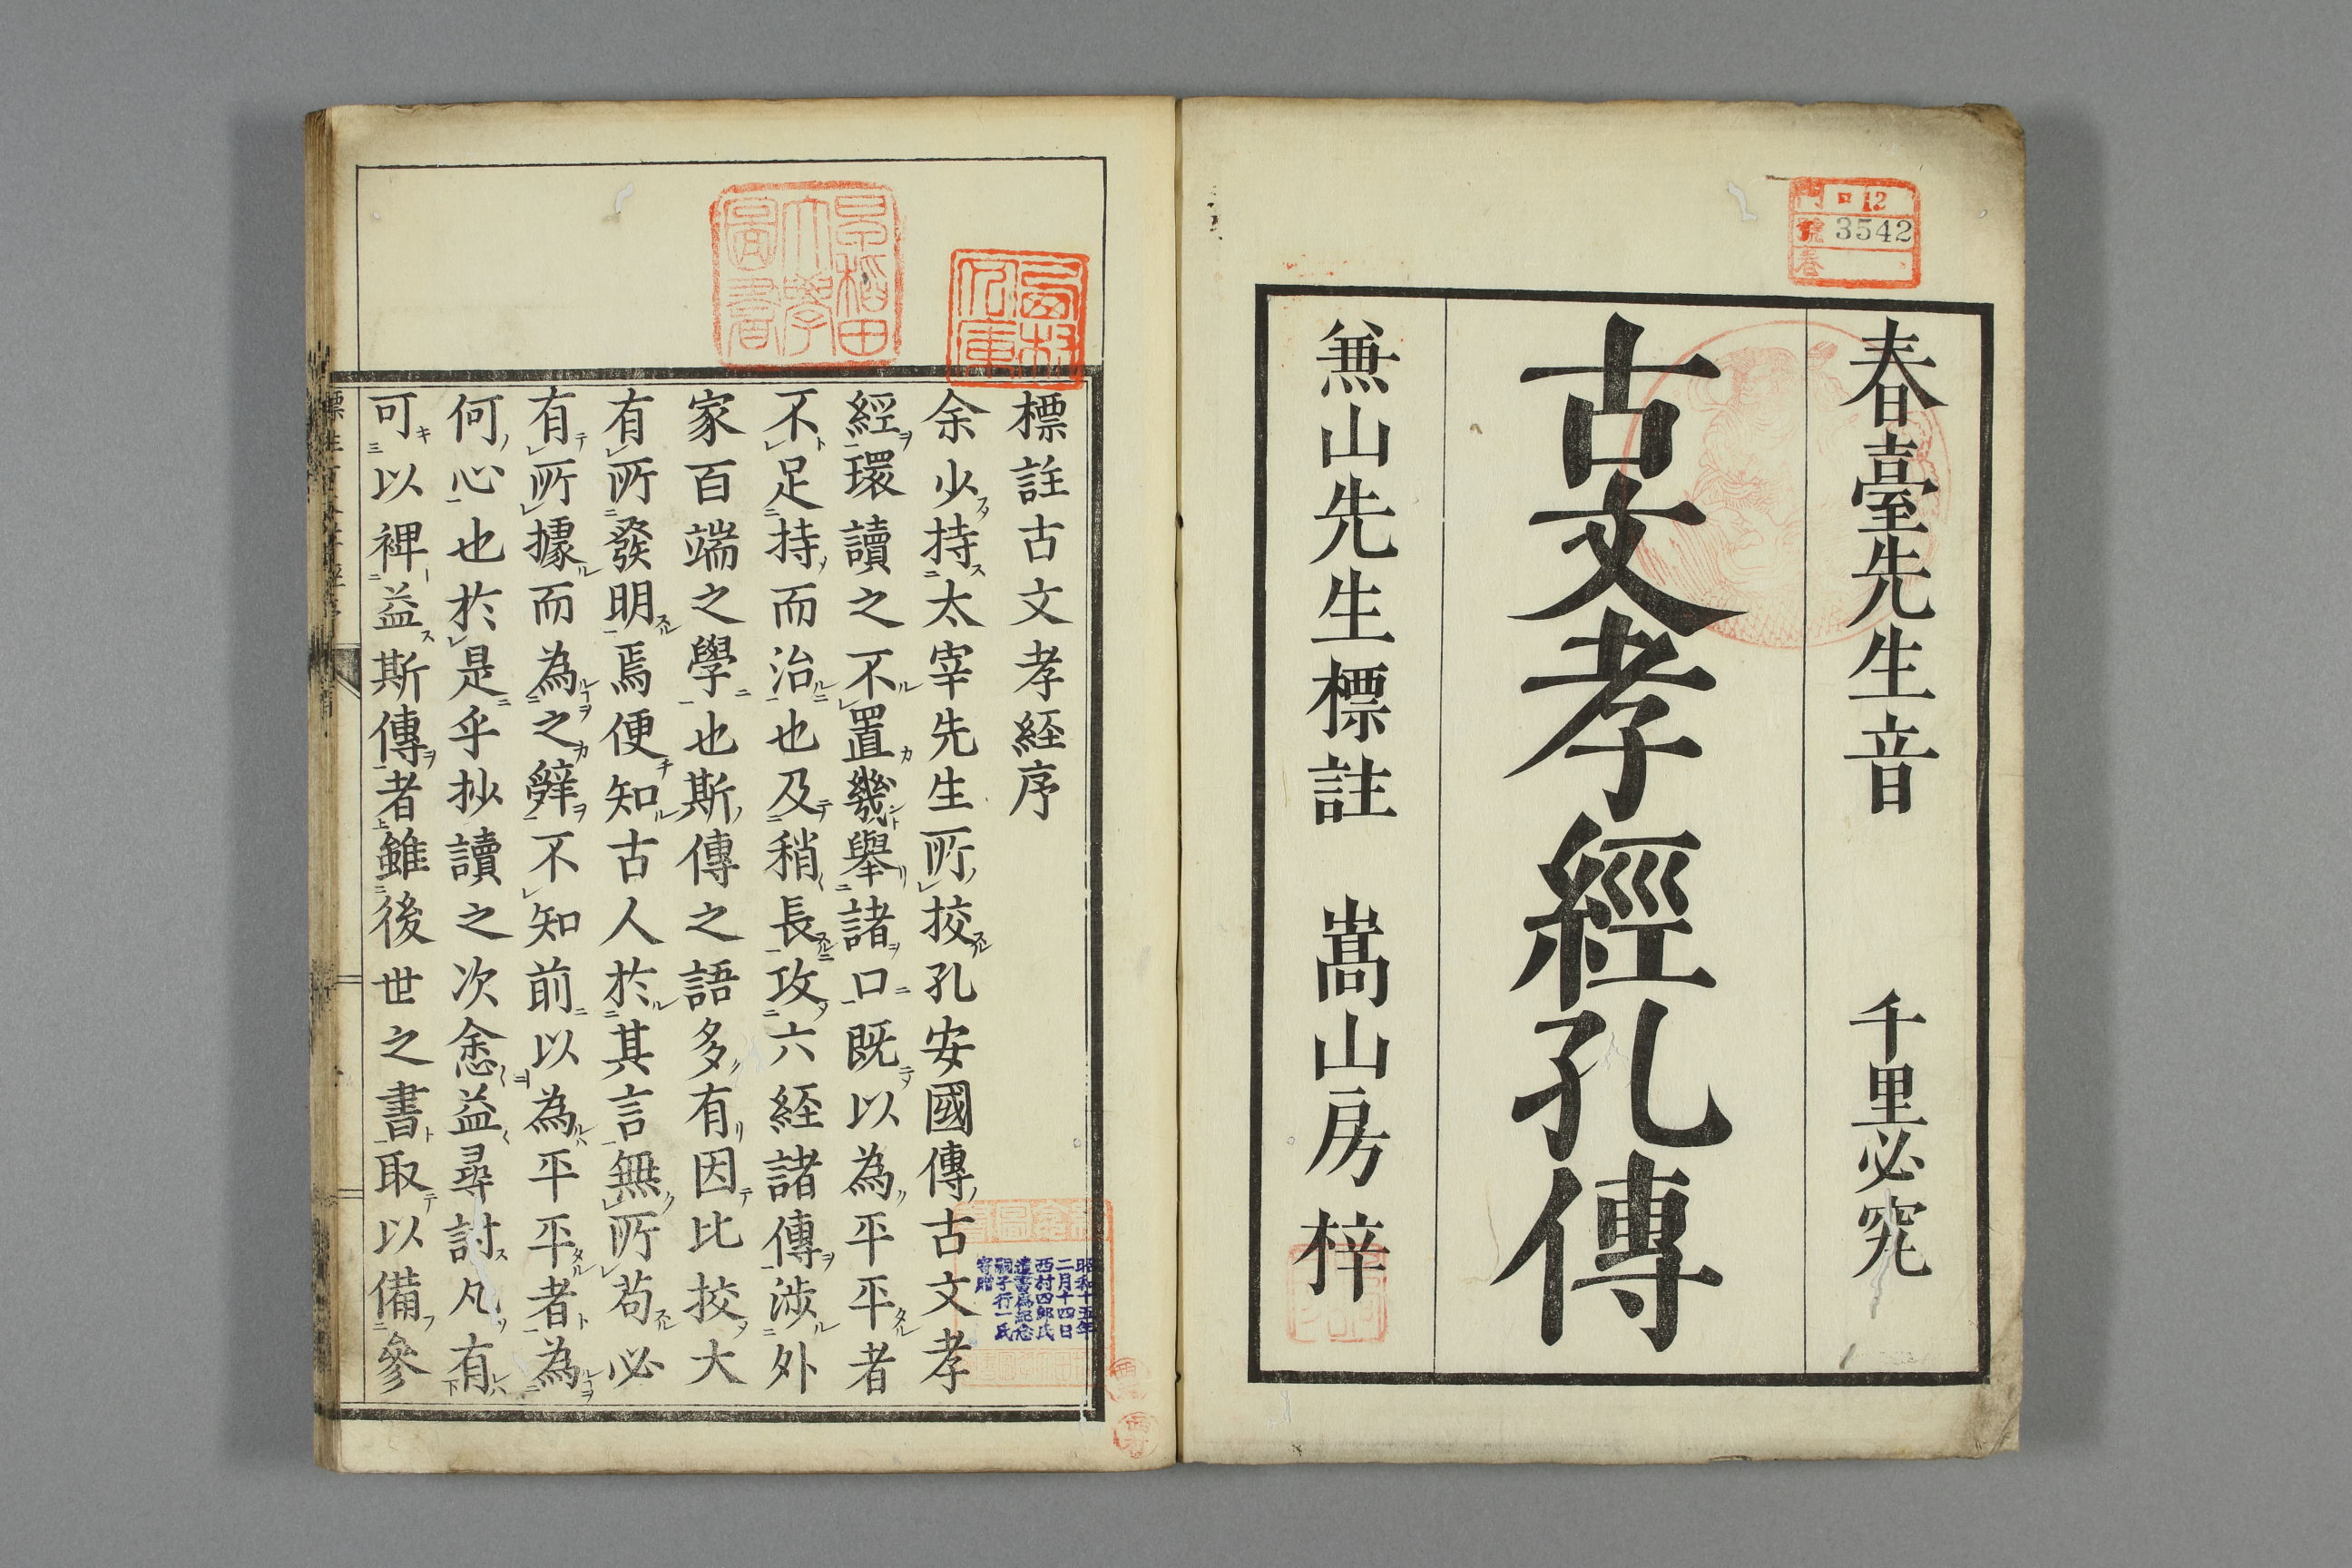 門 ロ 12
號 3542
春臺先生音 千里必究
古文孝經孔傳
兼山先生標註 嵩山房梓
早稻田
大學
圖書
標註古文孝経序
余少持太宰先生所挍孔安國傳古文孝
經環讀之不置幾舉諸口既以為平平者
不足持而治也及稍長攻六経諸傳渉外
家百端之學也斯傳之語多有因比挍大
有所發明焉便知古人於其言無所苟必
有所據而為之辤不知前以為平平者為
何心也於是乎抄讀之次悆益尋討凡有
可以裨益斯傳者雖後世之書取以備參
昭和十五年
二月十四日
西村四郎氏
遺書爲記念
嗣子行一氏
寄贈